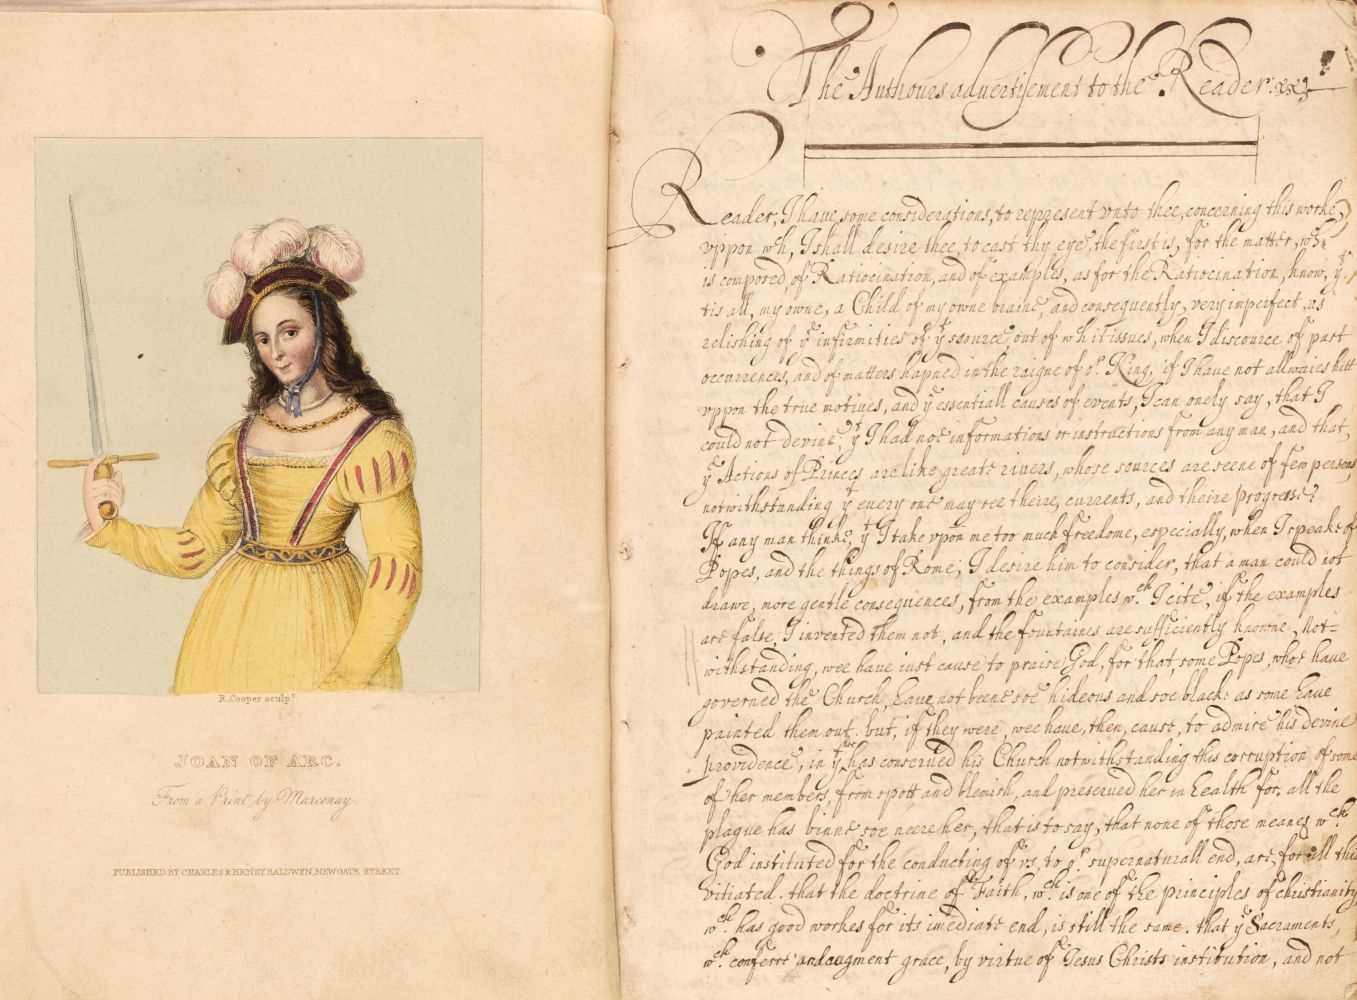 R. Cooper sculpt.
JOAN OF ARC.
From a Print by Marcenay.
PUBLISHED BY CHARLES & HENRY BALDWYN, NEWGATE STREET.
The Authours advertisement to the Reader:
Reader, I have some considerations, to represent vnto thee, concerning this worke,
vppon wch, I shall desire thee, to cast thy eye, the first is, for the matter, wch
is composed, of Ratiocination, and of examples, as for the Ratiocination, know, yt
tis all, my owne, a Child of my owne braine, and consequently, very imperfect, as
relishing of ye infirmities of ye source, out of wh it issues, when I discource of past
occurrences, and of matters hapned in the raigne of or. King, if I have not allwaies hitt
vppon the true motives, and ye essentiall causes of events, I can onely say, that I
could not devine, yt I had not informations or instructions from any man, and that,
ye Actions of Princes are like great rivers, whose sources are seene of few persons
notwithstanding yt every one may see theire, currents, and theire progresse.
If any man thinke, yt I take vpon me too much freedome, especially, when I speake of
Popes, and the things of Rome; I desire him to consider, that a man could not
drawe, more gentle consequences, from the examples wch. I cite, if the examples
are false, I invented them not, and the fountaines are sufficiently knowne, Not=
withstanding, wee have iust cause to praise God, for that, some Popes, whoe have
governed the Church, have not beene soe hideous and soe black: as some have
painted them out. but, if they were, wee have, then, cause, to admire his devine
providence, in yt has conserved his Church notwithstanding this corruption of some
of her members, from spott and blemish, and preserved her in health for, all the
plague has binne soe neere her, that is to say, that none of those meanes wch.
God instituted for the conducting of vs, to or supernaturall end, are, for all this
vitiated. that the doctrine of Faith, wch. is one of the principles of christianity
wch. has good workes for its imediate end, is still the same. that ye Sacraments,
wch. conferre and augment grace, by virtue of Iesus Christs institution, and not